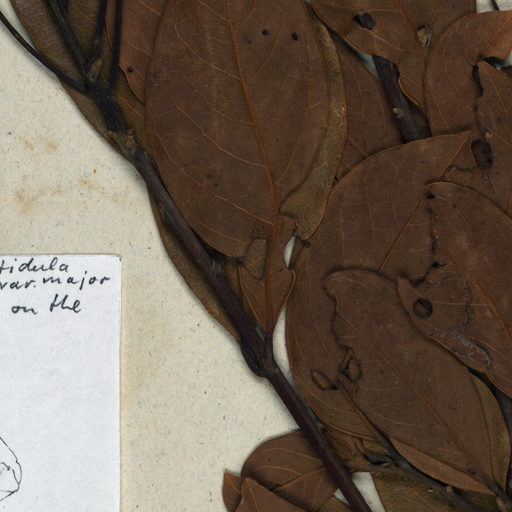 tidula
var. major
on the